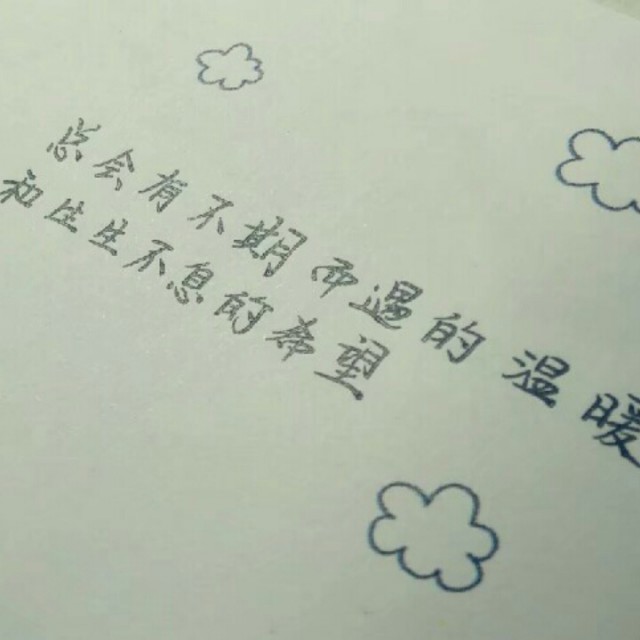 总会有不期而遇的温暖
和生生不息的希望